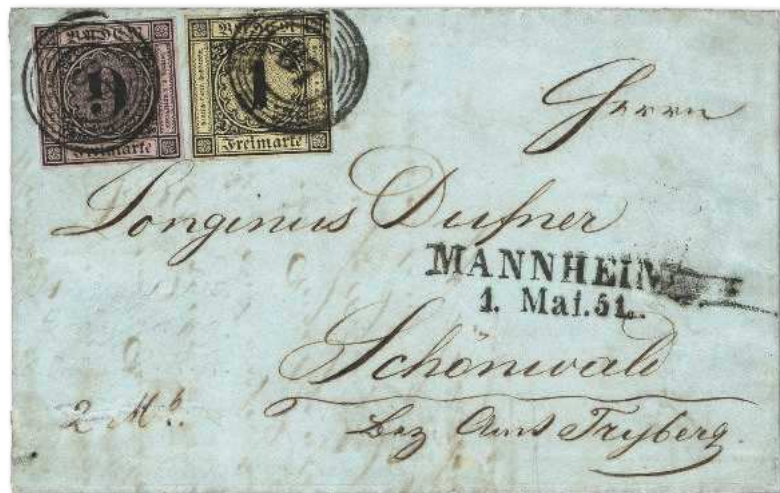 BADEN
9
Freimarke
BADEN
1
Freimarke
87
Herrn
Longinus Dufner
MANNHEIM
1. Mai. 51.
Schönwald
2 M
Bez Amt Tryberg.